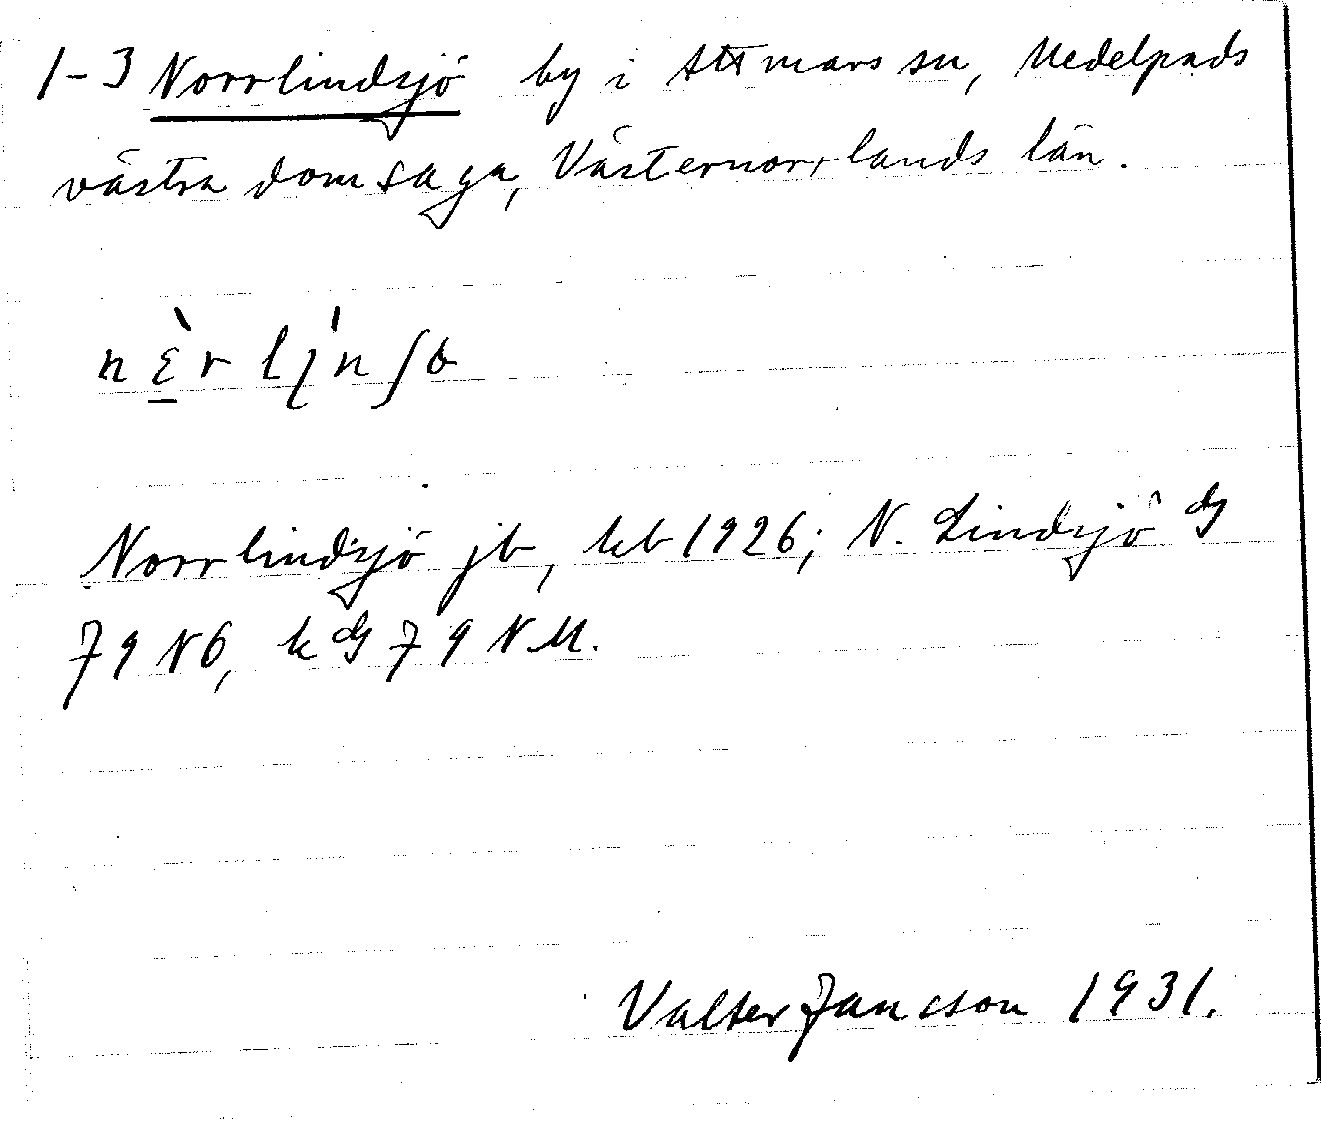 1-3 Norrlindsjö by i Attmars sn, Medelpads
västra domsaga, Västernorrlands län.
nɛ̀rlı̡́nʃɵ
Norrlindsjö jb, kb 1926; N. Lindsjö dg
79 NO, k dg 79 NM.
Valter Jansson 1931.